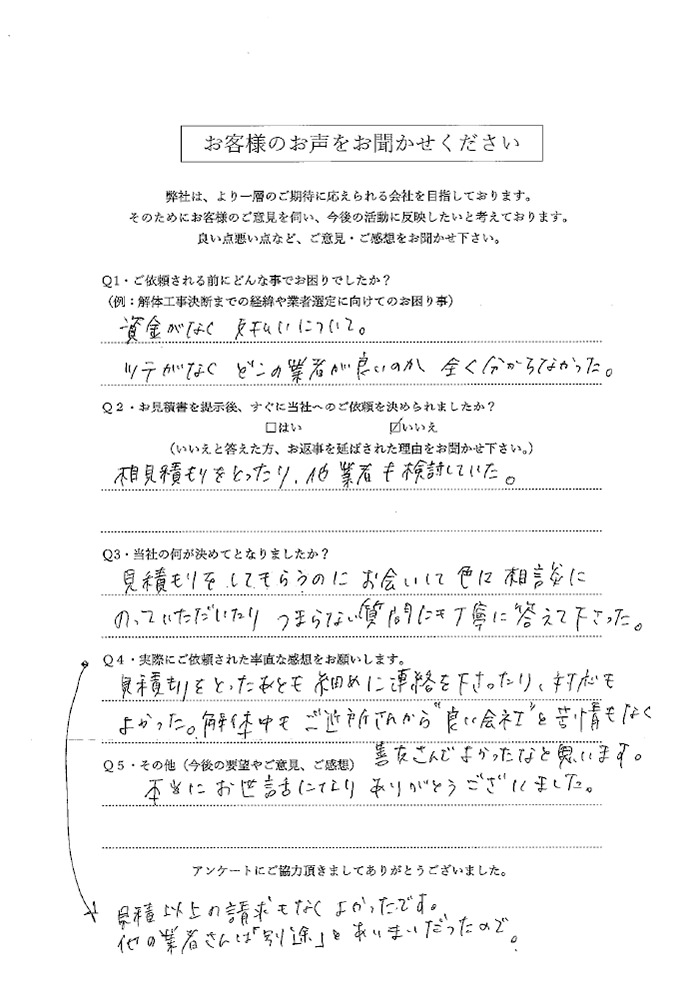 お客様のお声をお聞かせください
弊社は、より一層のご期待に応えられる会社を目指しております。
そのためにお客様のご意見を伺い、今後の活動に反映したいと考えております。
良い点悪い点など、ご意見・ご感想をお聞かせ下さい。
Q1・ご依頼される前にどんな事でお困りでしたか?
(例:解体工事決断までの経緯や業者選定に向けてのお困り事)
資金がなく 支払いについて。
ツテがなく どこの業者が良いのか 全く分からなかった。
Q2・お見積書を提示後、すぐに当社へのご依頼を決められましたか?
□はい ☑いいえ
(いいえと答えた方、お返事を延ばされた理由をお聞かせ下さい。)
相見積もりをとったり、他業者も検討していた。
Q3・当社の何が決めてとなりましたか?
見積もりをしてもらうのに お会いして 色々 相談に
のっていただいたり つまらない質問にも丁寧に答えて下さった。
Q4・実際にご依頼された率直な感想をお願いします。
見積もりをとったあとも 細めに連絡を下さったり、対応も
よかった。解体中も ご近所さんから"良い会社"と苦情もなく
善友さんでよかったなと思います。
Q5・その他(今後の要望やご意見、ご感想)
本当に お世話になり ありがとうございました。
アンケートにご協力頂きましてありがとうございました。
見積以上の請求もなく よかったです。
他の業者さんは「別途」と あいまいだったので。